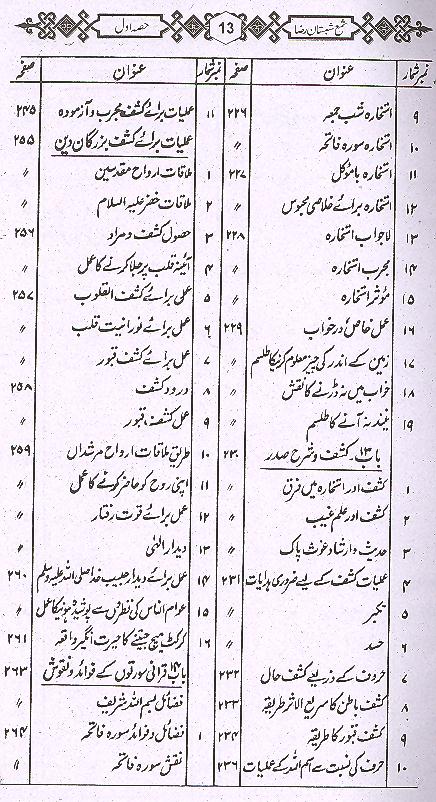 شمع شبستان رضا 13 حصہ اول
نمبر شمار عنوان صفحہ
۹ استخارہ شب جمعہ ۲۲۶
۱۰ استخارہ سورہ فاتحہ 〃
۱۱ استخارہ بامؤکل ۲۲۷
۱۲ استخارہ برائے خلاصی محبوس 〃
۱۳ لاجواب استخارہ ۲۲۸
۱۴ مجرب استخارہ 〃
۱۵ مؤثر استخارہ 〃
۱۶ عمل خاص در خواب ۲۲۹
۱۷ زمین کے اندر کی چیز معلوم کرنیکا طلسم 〃
۱۸ خواب میں نہ ڈرنے کا نقش 〃
۱۹ نیند نہ آنے کا طلسم 〃
باب ۱۳ کشف و شرح صدر ۲۳۰
۱ کشف اور استخارہ میں فرق 〃
۲ کشف اور علم غیب 〃
۳ حدیث و ارشاد غوث پاک 〃
۴ عملیات کشف کے لیے ضروری ہدایات ۲۳۱
۵ تکبر 〃
۶ حسد 〃
۷ حروف کے ذریعے کشف حال ۲۳۲
۸ کشف باطن کا سریع الاثر طریقہ ۲۳۳
۹ کشف قبور کا طریقہ ۲۳۴
۱۰ حرف کی نسبت سے اسم اللہ کے عملیات ۲۳۶
نمبر شمار عنوان صفحہ
۱۱ عملیات برائے کشف مجرب و آزمودہ ۲۴۵
عملیات برائے کشف بزرگان دین ۲۵۵
۱ ملاقات ارواح مقدسین 〃
۲ ملاقات خضر علیہ السلام 〃
۳ حصول کشف و مراد ۲۵۶
۴ آئینہ قلب پر جلا کرنے کا عمل 〃
۵ عمل برائے کشف القلوب ۲۵۷
۶ عمل برائے نورانیت قلب 〃
۷ عمل برائے کشف قبور 〃
۸ درود کشف ۲۵۸
۹ عمل کشف قبور 〃
۱۰ طریق ملاقات ارواح مرشداں ۲۵۹
۱۱ اپنی روح کو حاضر کرنے کا عمل 〃
۱۲ عمل برائے قوت رفتار 〃
۱۳ دیدار الٰہی 〃
۱۴ عمل برائے دیدار حبیب خدا صلی اللہ علیہ وسلم ۲۶۰
۱۵ عوام الناس کی نظروں سے پوشیدہ ہونیکا عمل 〃
۱۶ کرکٹ میچ جیتنے کا حیرت انگیز واقعہ ۲۶۱
باب ۱۴ قرآنی سورتوں کے فوائد و نقوش ۲۶۳
فضائل بسم اللہ شریف 〃
۱ فضائل و فوائد سورہ فاتحہ ۲۶۴
نقش سورہ فاتحہ 〃